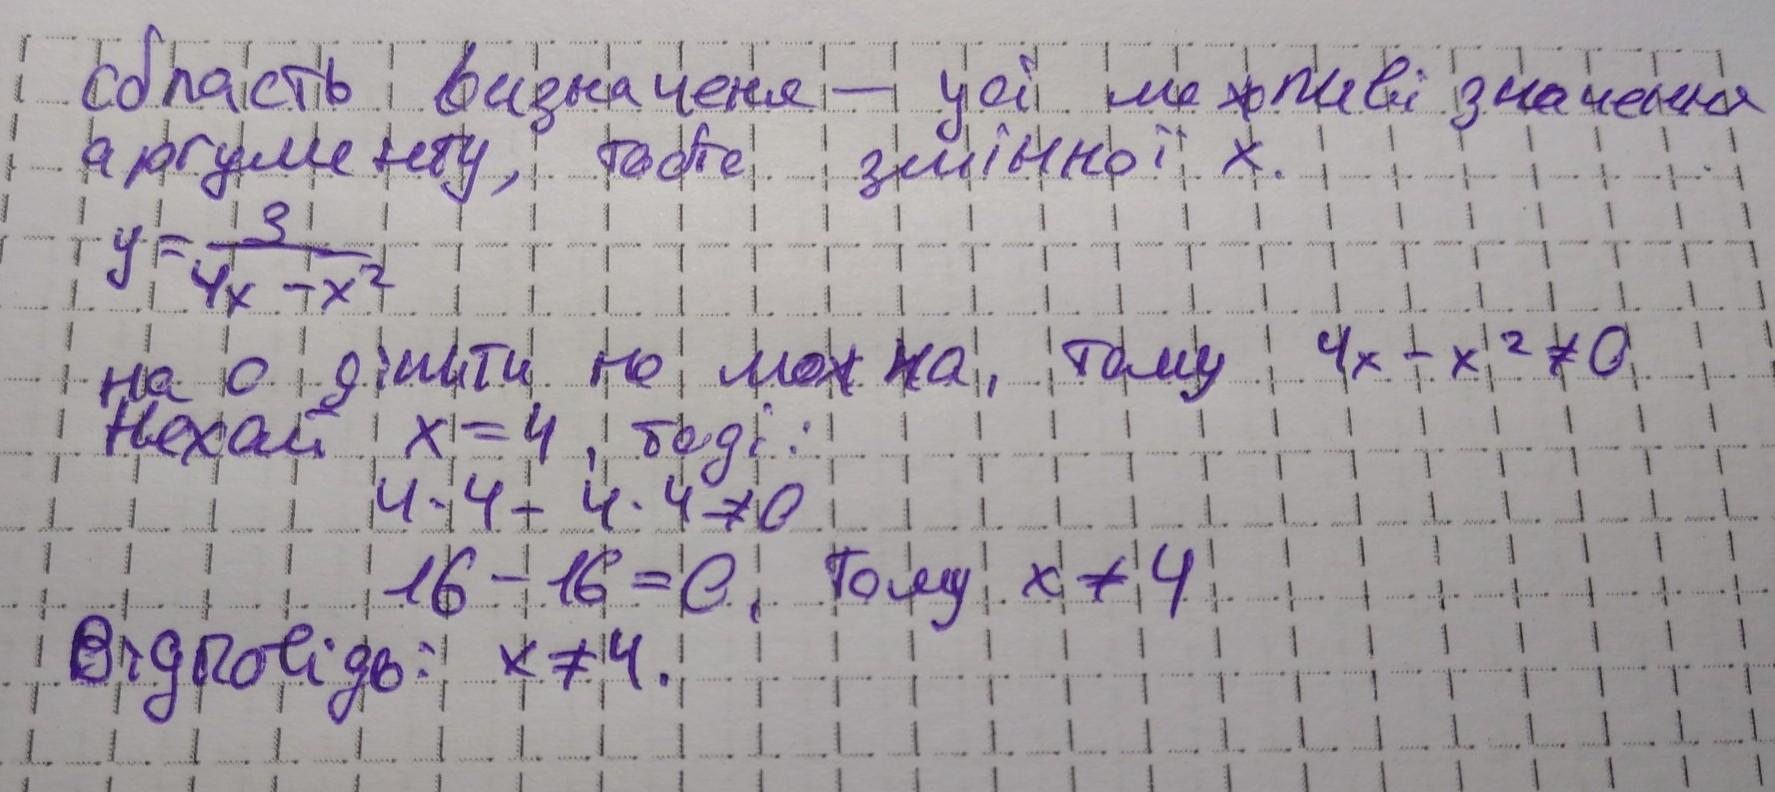 область визначеня — усі можливі значення
аргументу, тобто змінної x.
y = 3/(4x - x²)
на 0 ділити не можна, тому 4x - x² ≠ 0
Нехай x = 4, тоді:
4·4 - 4·4 ≠ 0
16 - 16 = 0, тому x ≠ 4
Відповідь: x ≠ 4.